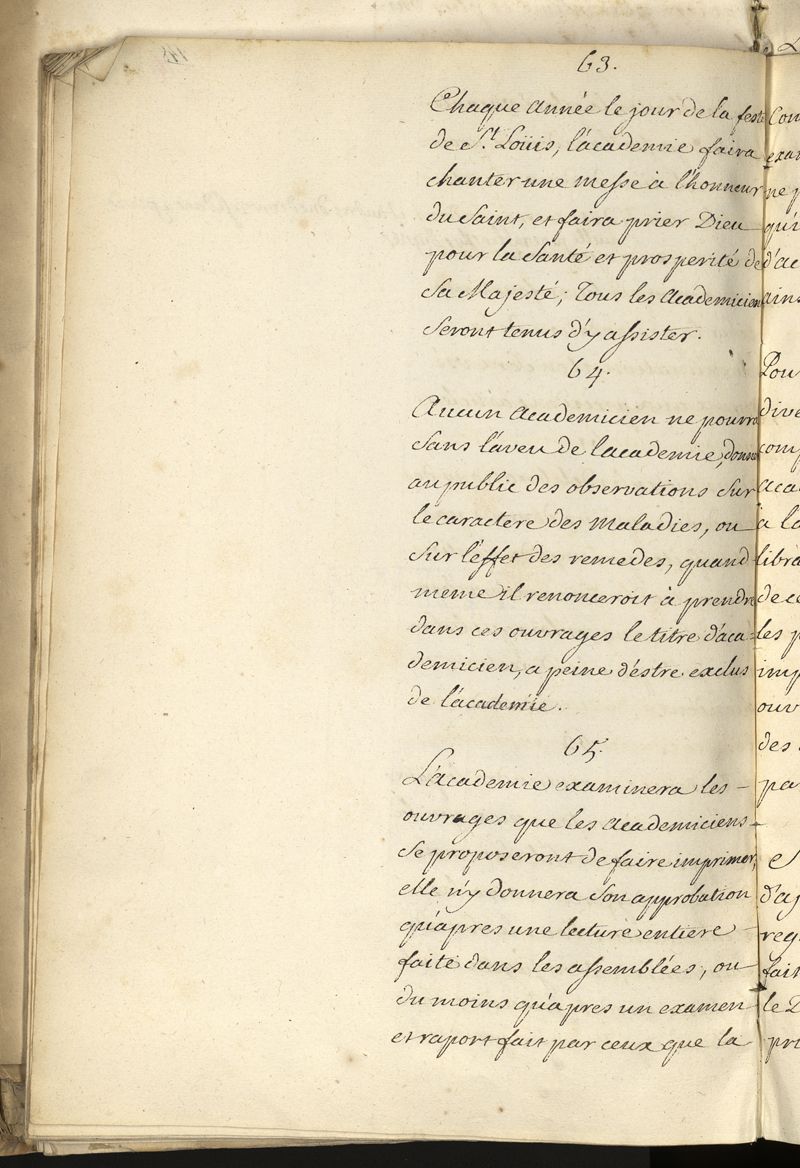 63.
Chaque année le jour de la feste
de S.t Loüis, l'academie faira
chanter une messe à l'honneur
du Saint, et faira prier Dieu
pour la Santé et prosperité de
Sa Majesté; Tous les Academiciens
Seront tenus d'y assister.
64.
Aucun Academicien ne pourra
Sans l'aveu de l'academie, donner
au public des observations Sur
le caractere des Maladies, ou
Sur l'effet des remedes, quand
meme il renonceroit à prendre
dans ces ouvrages le titre d'aca-
demicien, a peine d'éstre exclus
de l'academie.
65.
L'academie examinera les -
ouvrages que les Academiciens -
Se proposeront de faire imprimer,
elle n'y donnera Son approbation
qu'apres une lecture entiere -
faite dans les assemblées, ou
du moins qu'apres un examen
et raport fait par ceux que la